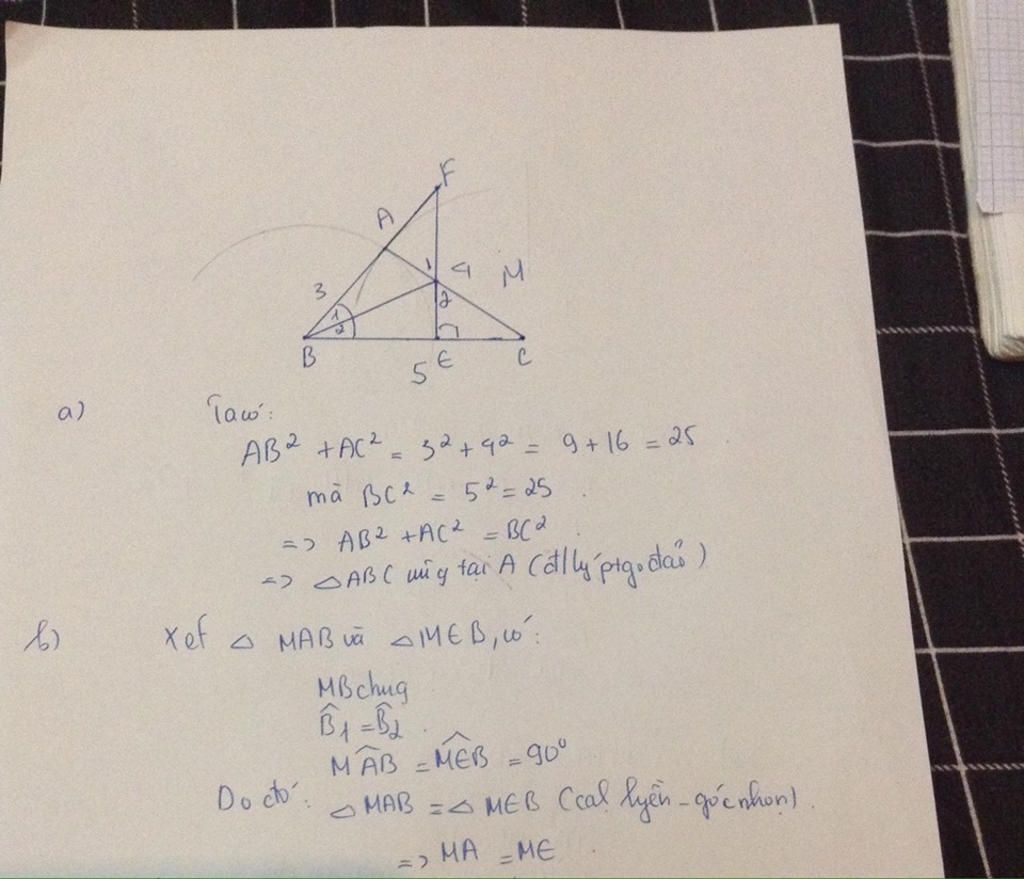 F
A
1 4 M
3 2
1
2
B E C
5
a) Ta có:
AB² + AC² = 3² + 4² = 9 + 16 = 25
mà BC² = 5² = 25
=> AB² + AC² = BC²
=> △ABC vuôg tại A (đ/lý ptgo đảo)
b) Xét △ MAB và △MEB, có:
MB chug
B̂1 = B̂2
M͡AB = M͡EB = 90⁰
Do đó: △MAB = △MEB (cạh huyền - góc nhọn).
=> MA = ME